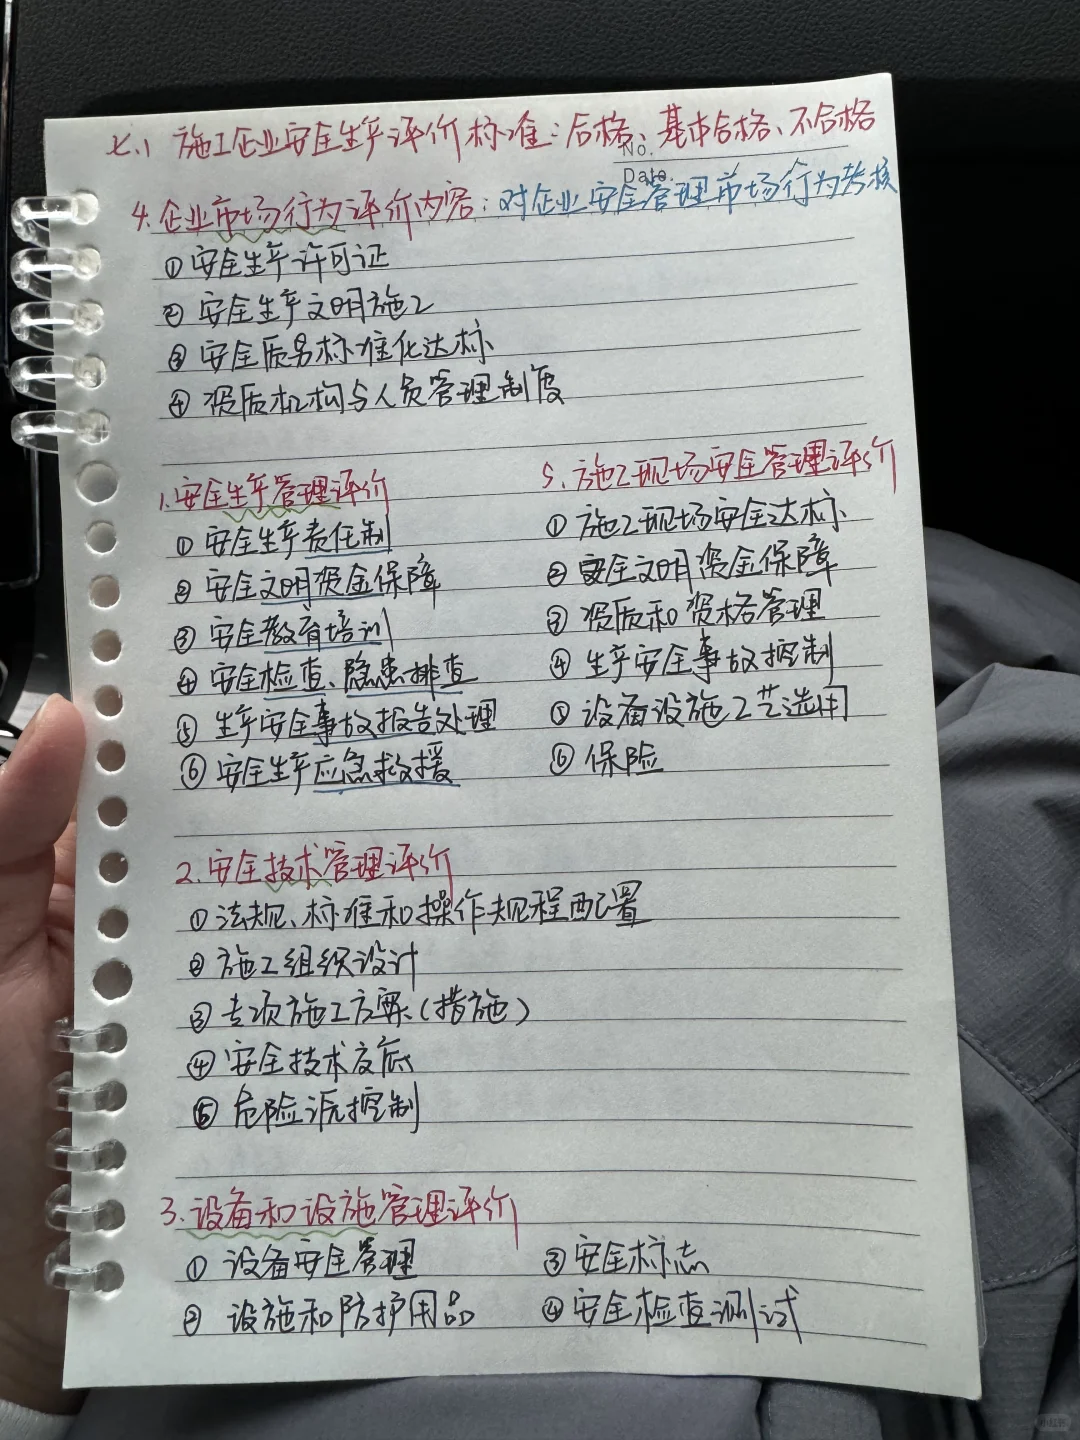 七、1 施工企业安全生产评价标准：合格、基本合格、不合格
No.
Date.
4.企业市场行为评价内容：对企业安全管理市场行为考核
①安全生产许可证
②安全生产文明施工
③安全质另标准化达标
④资质机构与人员管理制度
1.安全生产管理评价
①安全生产责任制
②安全文明资金保障
③安全教育培训
④安全检查、隐患排查
⑤生产安全事故报告处理
⑥安全生产应急救援
5.施工现场安全管理评价
①施工现场安全达标
②安全文明资金保障
③资质和资格管理
④生产安全事故控制
⑤设备设施工艺选用
⑥保险
2.安全技术管理评价
①法规、标准和操作规程配置
②施工组织设计
③专项施工方案（措施）
④安全技术交底
⑤危险源控制
3.设备和设施管理评价
①设备安全管理
②设施和防护用品
③安全标志
④安全检查测试
小红书